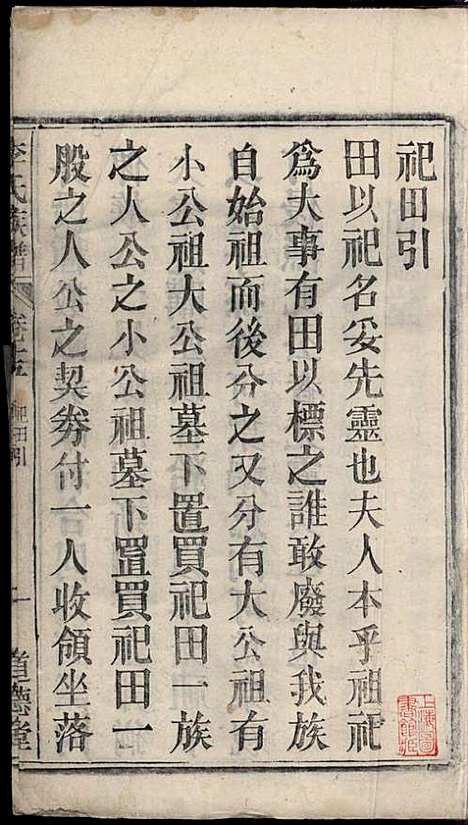 祀田引
田以祀名妥先靈也夫人本乎祖祀
爲大事有田以標之誰敢廢與我族
自始祖而後分之又分有大公祖有
小公祖大公祖墓下置買祀田一族
之人公之小公祖墓下置買祀田一
股之人公之契券付一人收領坐落
李氏族譜 卷十五 祀田引 一 道德堂
上海圖書館藏